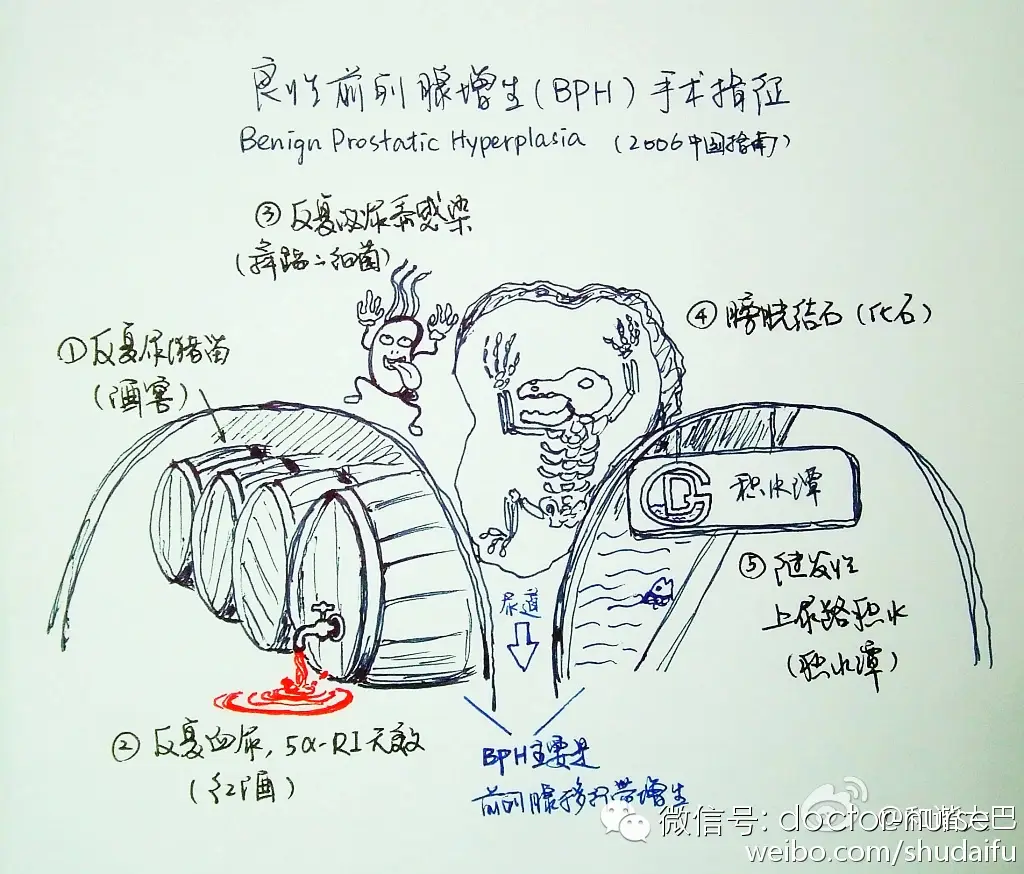 良性前列腺增生(BPH)手术指征
Benign Prostatic Hyperplasia (2006中国指南)
③ 反复泌尿系感染
(舞蹈的细菌)
① 反复尿潴留
(酒窖)
④ 膀胱结石(化石)
积水潭
⑤ 继发性
上尿路积水
(积水潭)
尿道
② 反复血尿, 5α-RI无效
(红酒)
BPH主要是
前列腺移行带增生
微信号: doctor-nurse
@和谐大巴
weibo.com/shudaifu